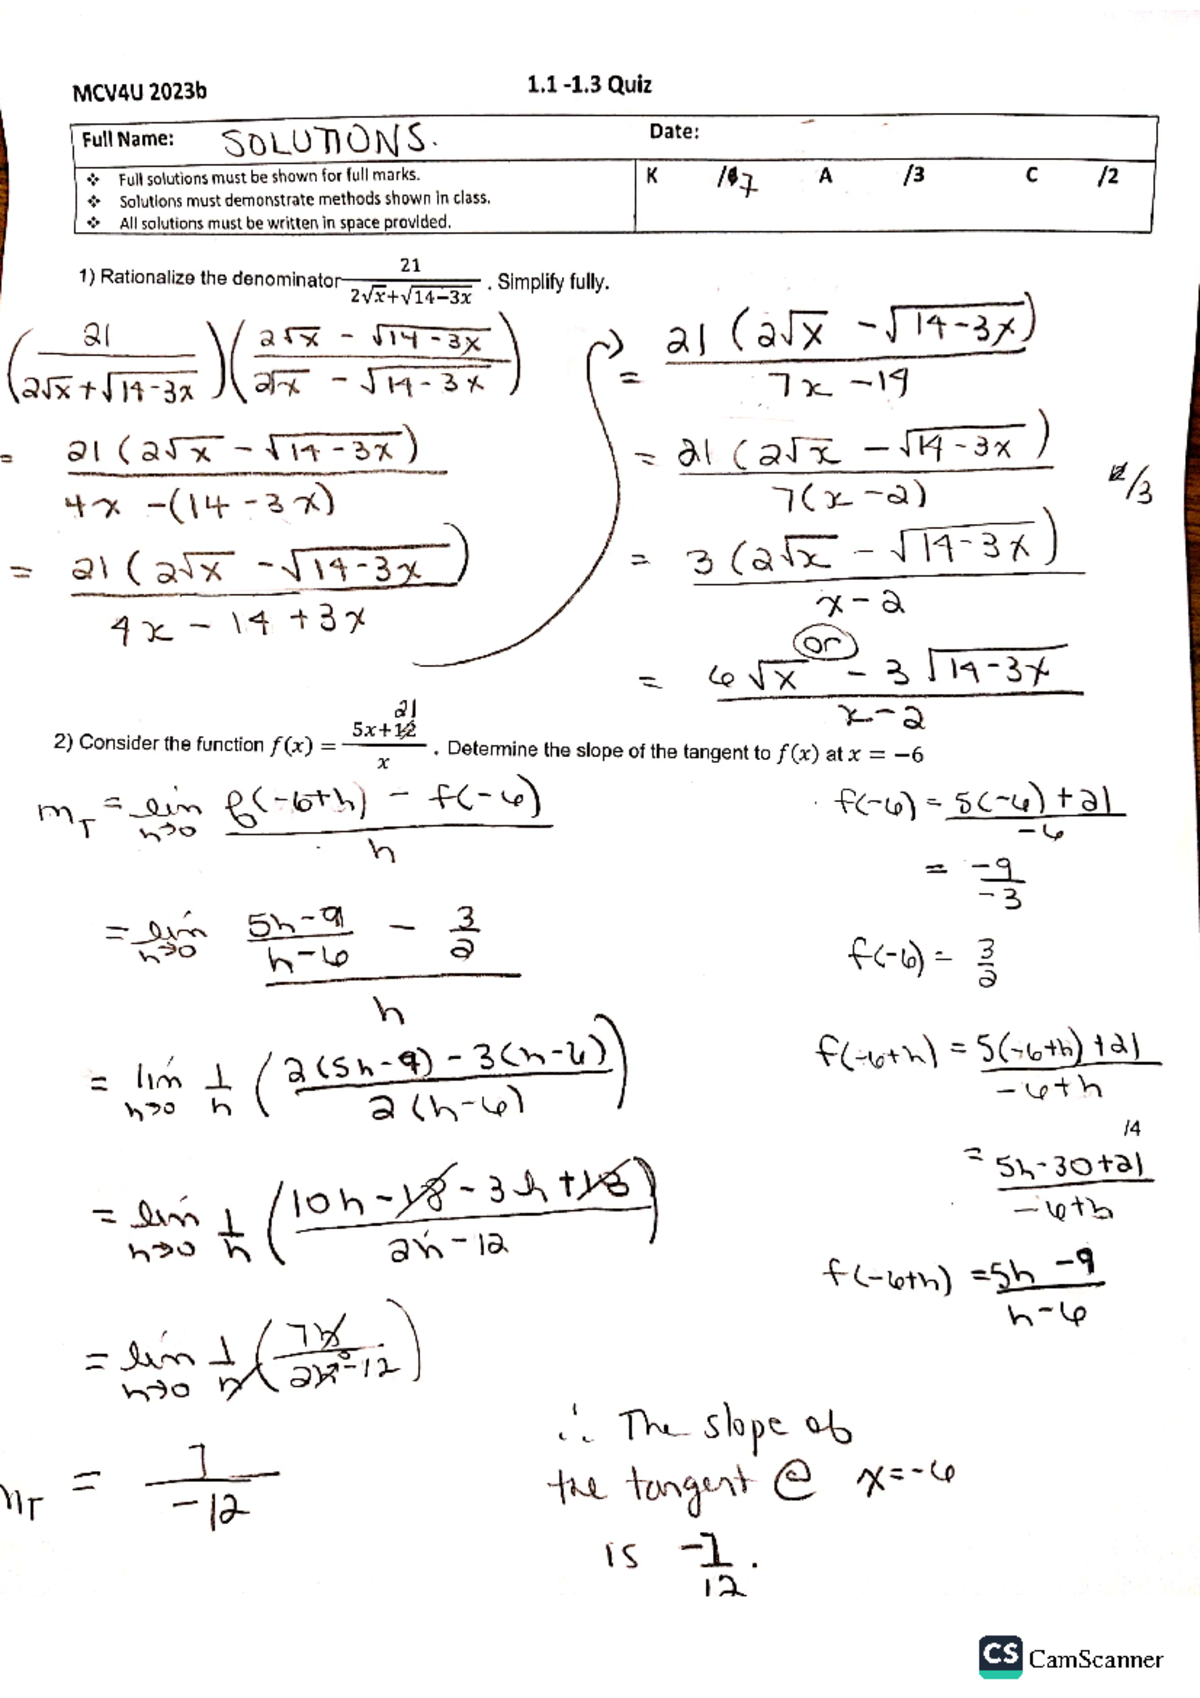 MCV4U 2023b
1.1 -1.3 Quiz
Full Name: SOLUTIONS.
Date:
❖ Full solutions must be shown for full marks.
❖ Solutions must demonstrate methods shown in class.
❖ All solutions must be written in space provided.
K /7 A /3 C /2
1) Rationalize the denominator 21/(2√x+√(14−3x)) . Simplify fully.
(21/(2√x + √(14-3x)))((2√x - √(14-3x))/(2√x - √(14-3x)))
= 21(2√x - √(14-3x))/(4x -(14-3x))
= 21(2√x - √(14-3x))/(4x - 14 + 3x)
= 21(2√x - √(14-3x))/(7x - 14)
= 21(2√x - √(14-3x))/(7(x-2))
/3
= 3(2√x - √(14-3x))/(x-2)
or
= (6√x - 3√(14-3x))/(x-2)
2) Consider the function f(x) = (5x+21)/x . Determine the slope of the tangent to f(x) at x = −6
m_T = lim h→0 (f(-6+h) - f(-6))/h
= lim h→0 ((5h-9)/(h-6) - 3/2)/h
= lim h→0 1/h ((2(5h-9) - 3(h-6))/(2(h-6)))
= lim h→0 1/h ((10h - 18 - 3h + 18)/(2h-12))
= lim h→0 1/h (7h/(2h-12))
m_T = 7/-12
f(-6) = (5(-6)+21)/-6
= -9/-3
f(-6) = 3/2
f(-6+h) = (5(-6+h)+21)/(-6+h)
/4
= (5h-30+21)/(-6+h)
f(-6+h) = (5h-9)/(h-6)
∴ The slope of
the tangent @ x=-6
is -7/12.
CS CamScanner